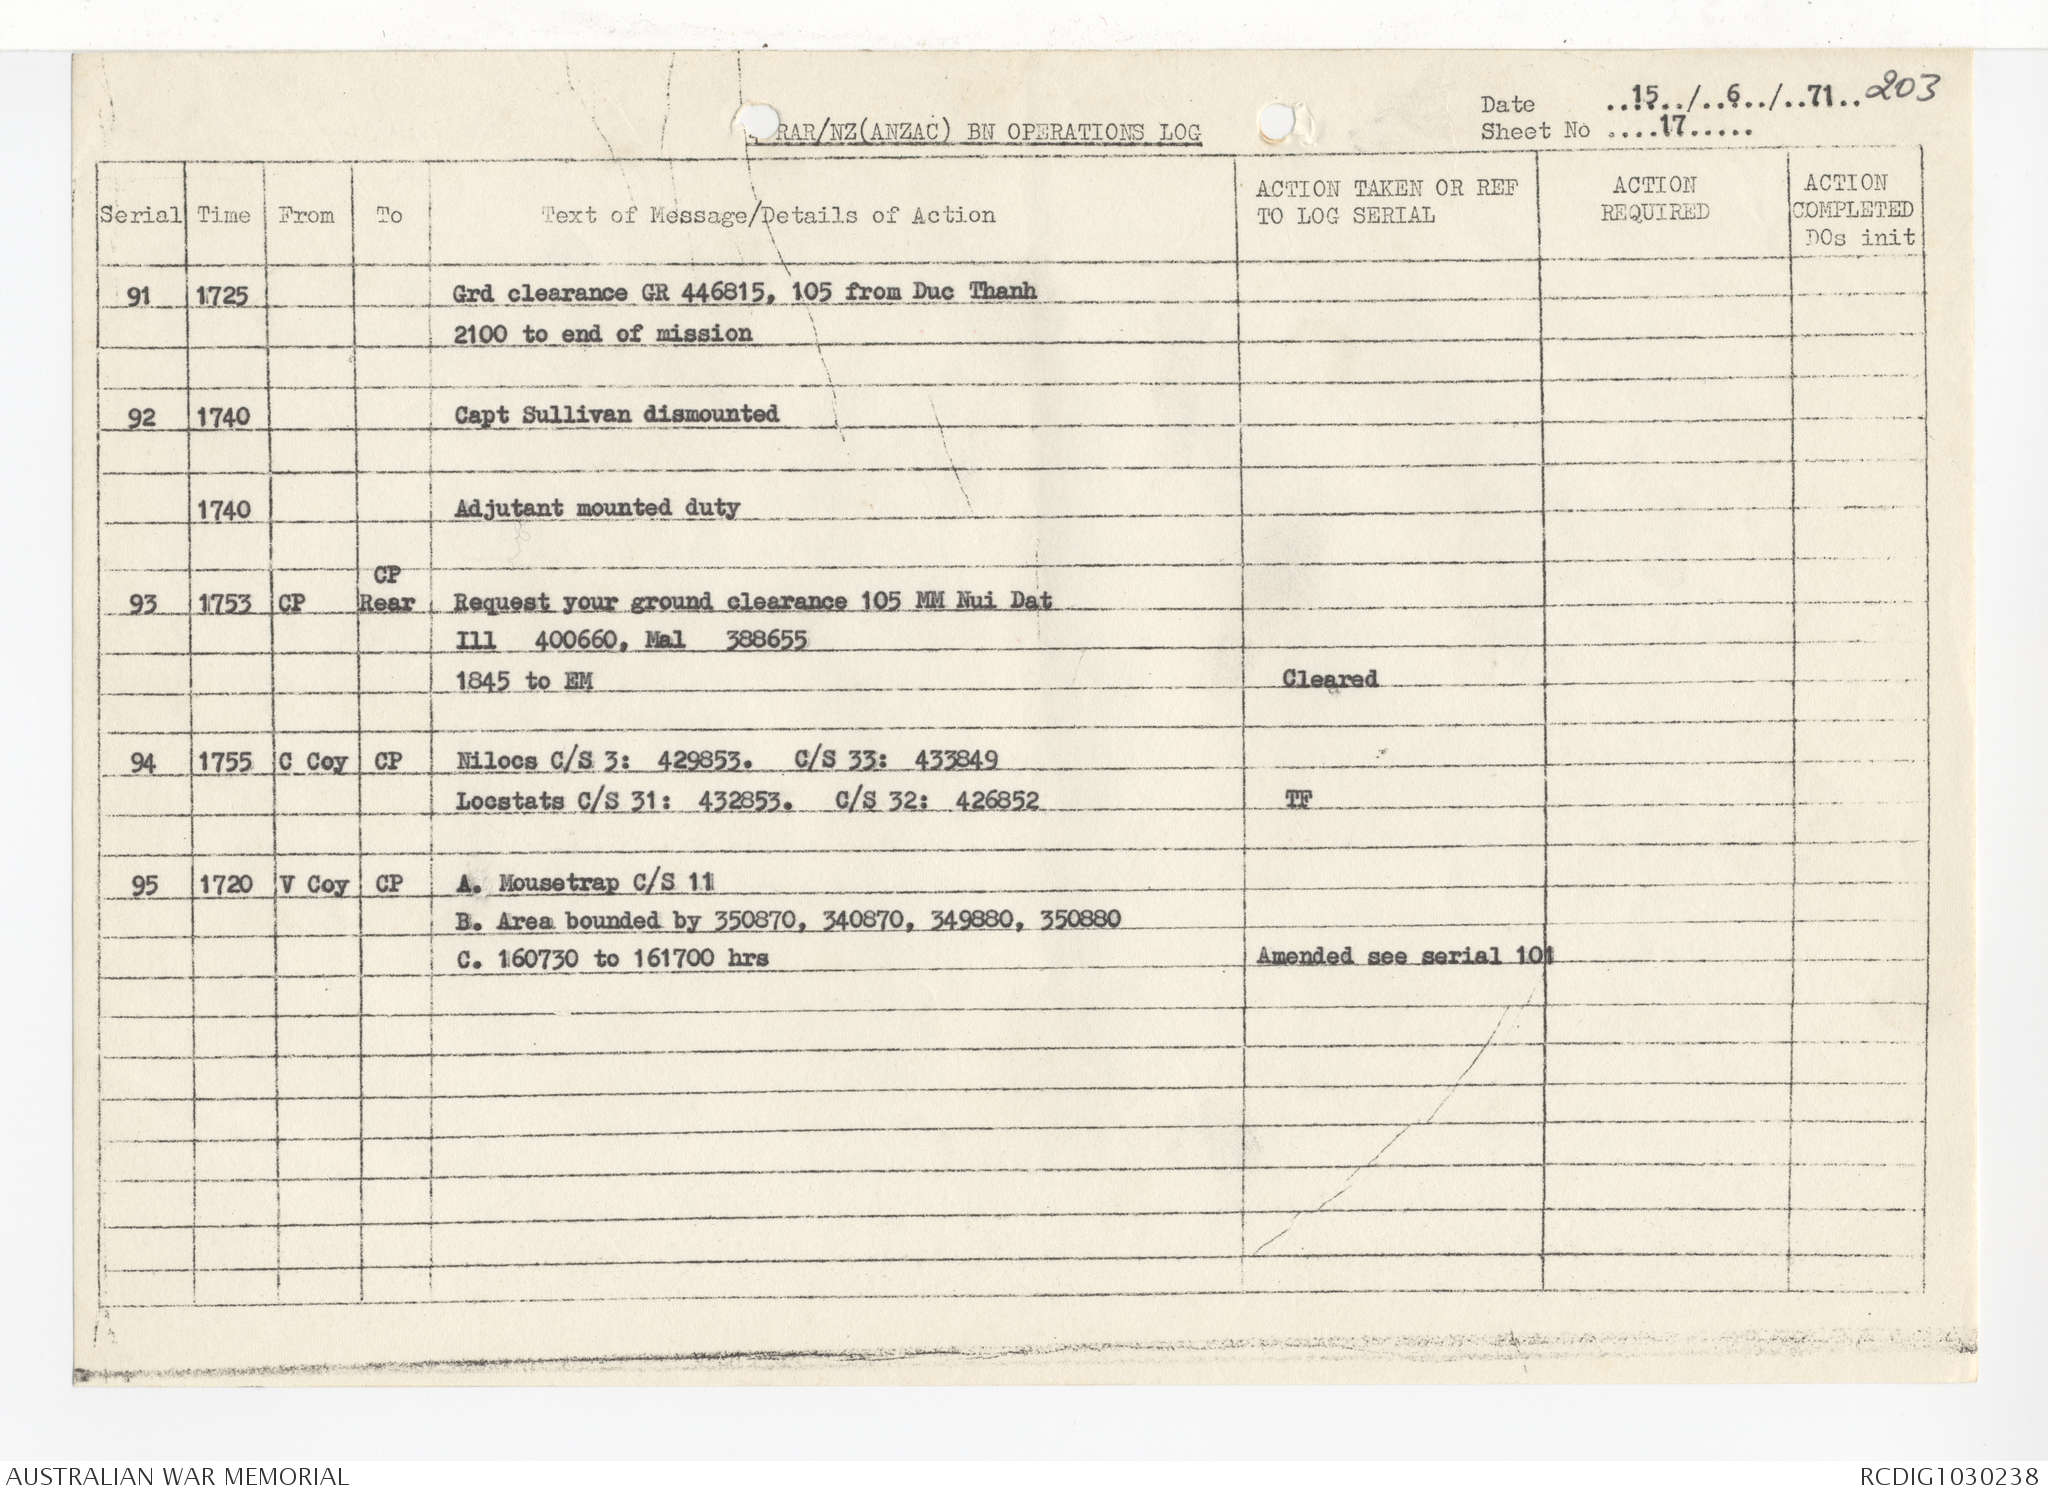 Date ..15../..6../..71.. 203
RAR/NZ(ANZAC) BN OPERATIONS LOG
Sheet No ....17.....
Serial Time From To Text of Message/Details of Action ACTION TAKEN OR REF TO LOG SERIAL ACTION REQUIRED ACTION COMPLETED DOs init
91 1725 Grd clearance GR 446815, 105 from Duc Thanh
2100 to end of mission
92 1740 Capt Sullivan dismounted
1740 Adjutant mounted duty
CP
93 1753 CP Rear Request your ground clearance 105 MM Nui Dat
Ill 400660, Mal 388655
1845 to EM Cleared
94 1755 C Coy CP Nilocs C/S 3: 429853. C/S 33: 433849
Locstats C/S 31: 432853. C/S 32: 426852 TF
95 1720 V Coy CP A. Mousetrap C/S 11
B. Area bounded by 350870, 340870, 349880, 350880
C. 160730 to 161700 hrs Amended see serial 101
AUSTRALIAN WAR MEMORIAL RCDIG1030238